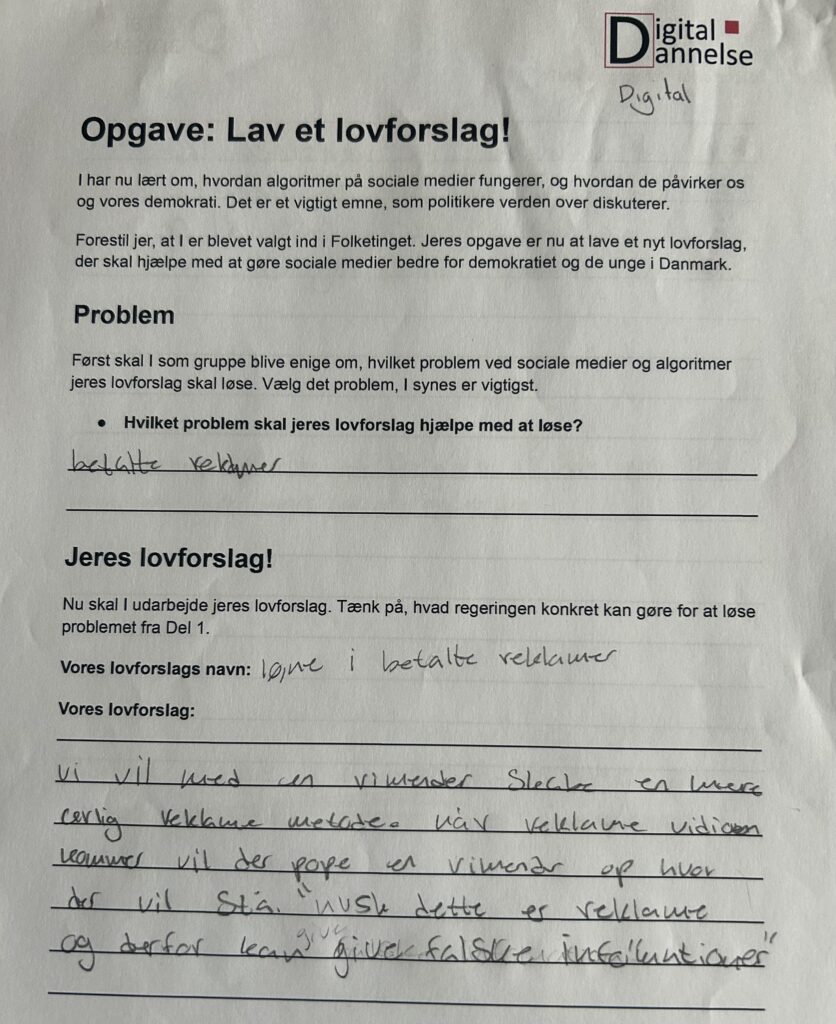 Digital
Dannelse
Digital
Opgave: Lav et lovforslag!
I har nu lært om, hvordan algoritmer på sociale medier fungerer, og hvordan de påvirker os
og vores demokrati. Det er et vigtigt emne, som politikere verden over diskuterer.
Forestil jer, at I er blevet valgt ind i Folketinget. Jeres opgave er nu at lave et nyt lovforslag,
der skal hjælpe med at gøre sociale medier bedre for demokratiet og de unge i Danmark.
Problem
Først skal I som gruppe blive enige om, hvilket problem ved sociale medier og algoritmer
jeres lovforslag skal løse. Vælg det problem, I synes er vigtigst.
• Hvilket problem skal jeres lovforslag hjælpe med at løse?
betalte reklamer
Jeres lovforslag!
Nu skal I udarbejde jeres lovforslag. Tænk på, hvad regeringen konkret kan gøre for at løse
problemet fra Del 1.
Vores lovforslags navn: løjne i betalte reklamer
Vores lovforslag:
vi vil med en vimender en mere
ærlig reklame metode. når reklame vidioen
kommer vil der pope en vimendr op hvor
der vil stå. "husk dette er reklame
og derfor kan give falske"